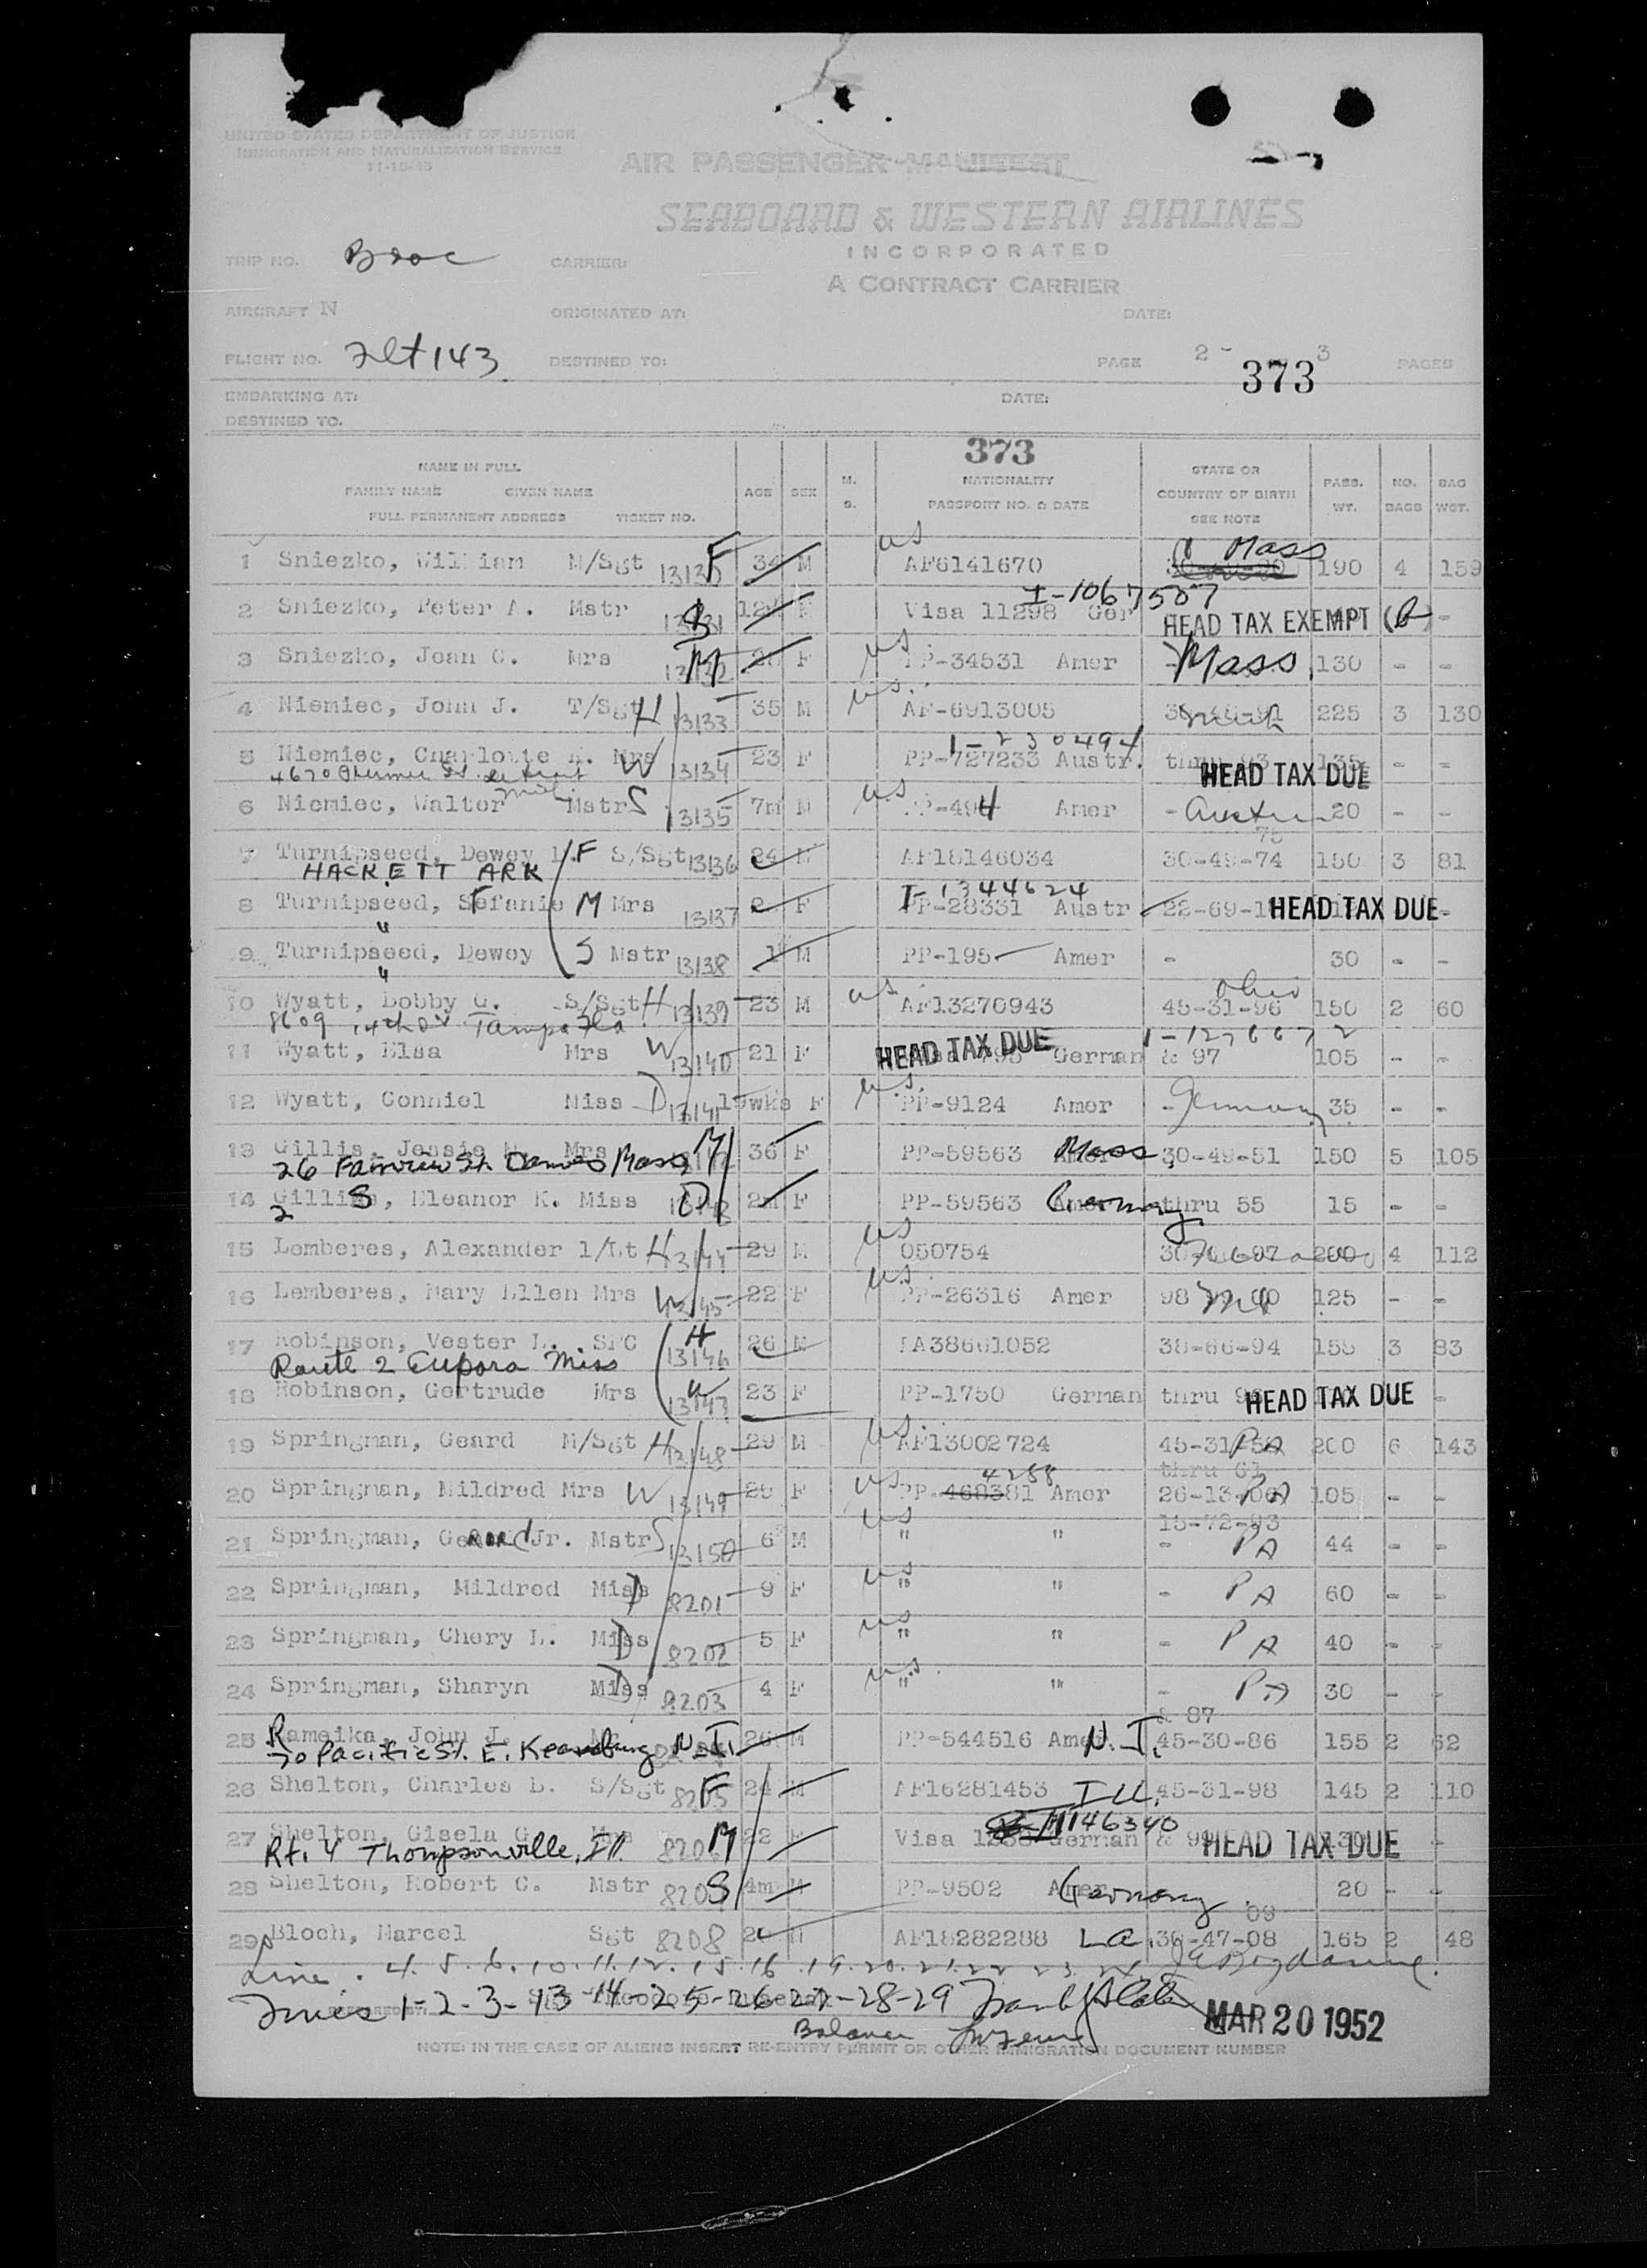 UNITED STATES DEPARTMENT OF JUSTICE
IMMIGRATION AND NATURALIZATION SERVICE
11-15-49
AIR PASSENGER MANIFEST
SEABOARD & WESTERN AIRLINES
INCORPORATED
A CONTRACT CARRIER
TRIP NO. CARRIER:
AIRCRAFT N ORIGINATED AT: DATE:
FLIGHT NO. Flt 143 DESTINED TO: PAGE 2 - 3 PAGES
373
EMBARKING AT: DATE:
DESTINED TO.
373
NAME IN FULL
FAMILY NAME GIVEN NAME
FULL PERMANENT ADDRESS TICKET NO.
AGE SEX M. S. NATIONALITY PASSPORT NO. & DATE STATE OR COUNTRY OF BIRTH SEE NOTE PASS. WT. NO. BAGS BAG WGT.
1 Sniezko, William M/Sgt F 34 M us AF6141670 Mass 190 4 159
I-1067507
2 Sniezko, Peter A. Mstr Visa 11298 Ger HEAD TAX EXEMPT -
3 Sniezko, Joan C. Mrs M F us PP-34531 Amer Mass 130 - -
4 Niemiec, John J. T/Sgt H 13133 35 M us. AF-6913005 225 3 130
1-230494
5 Niemiec, Charlotte Mrs W 13134 23 F PP-727233 Austr. thru 93 HEAD TAX DUE - -
6 Niemiec, Walter Mstr S 13135 7m M us Amer - 20 - -
75
7 Turnipseed, Dewey L. F S/Sgt 13136 24 M AF18146034 30-49-74 150 3 81
HACKETT ARK
I-1344624
8 Turnipseed, Stefanie M Mrs 13137 F PP-28331 Austr HEAD TAX DUE -
"
9 Turnipseed, Dewey S Mstr 13138 1 M PP-195 Amer - 30 - -
"
10 Wyatt, Bobby G. S/Sgt H 13139 23 M us AF13270943 Ohio 45-31-96 150 2 60
8609 14th Tampa Fla
11 Wyatt, Elsa Mrs W 13140 21 F HEAD TAX DUE German & 97 105 - -
12 Wyatt, Conniel Miss D 13141 19wks F us. PP-9124 Amer - Germany 35 - -
13 Gillis, Jessie Mrs M 36 F PP-59563 Mass 30-49-51 150 5 105
26 Fairview St. Mass
14 Gillis, Eleanor K. Miss D 2m F PP-59563 Germany thru 55 15 - -
15 Lemberes, Alexander 1/Lt H 13144 29 M us 050754 200 4 112
16 Lemberes, Mary Ellen Mrs W 13145 22 F us. PP-26316 Amer 125 - -
17 Robinson, Vester L. SFC H 13146 26 M RA38661052 38-66-94 155 3 83
Route 2 Eupora Miss
18 Robinson, Gertrude Mrs W 13147 23 F PP-1750 German thru HEAD TAX DUE -
19 Springman, Geard M/Sgt H 13148 29 M us AF13002724 PA 200 6 143
thru 61
4288
20 Springman, Mildred Mrs W 13149 29 F us Amer PA 105 - -
15-72-93
21 Springman, Gerard Jr. Mstr S 13150 6 M us " " - PA 44 - -
22 Springman, Mildred Miss D 8201 9 F us " " - PA 60 - -
23 Springman, Chery L. Miss D 8202 5 F us " " - PA 40 - -
24 Springman, Sharyn Miss D 8203 4 F us " " - PA 30 - -
& 87
25 Rameika, John J. Mr 26 M PP-544516 Amer N.J. 45-30-86 155 2 62
70 Pacific St. E. Keansburg N.J.
26 Shelton, Charles B. S/Sgt F 8205 24 M AF16281453 Ill. 45-31-98 145 2 110
1146340
27 Shelton, Gisela G. M 22 F Visa German HEAD TAX DUE -
Rt. 4 Thompsonville, Ill.
28 Shelton, Robert C. Mstr S 4m M PP-9502 Amer Germany 20 - -
09
29 Bloch, Marcel Sgt 8208 M AF18282288 La. 36-47-08 165 2 48
Line . 4. 5. 6. 10. 11. 12. 15. 16. 19. 20. 21. 22. 23. 24
Lines 1-2-3-13-14-25-26-27-28-29
Balance
MAR 20 1952
NOTE: IN THE CASE OF ALIENS INSERT RE-ENTRY PERMIT OR OTHER IMMIGRATION DOCUMENT NUMBER